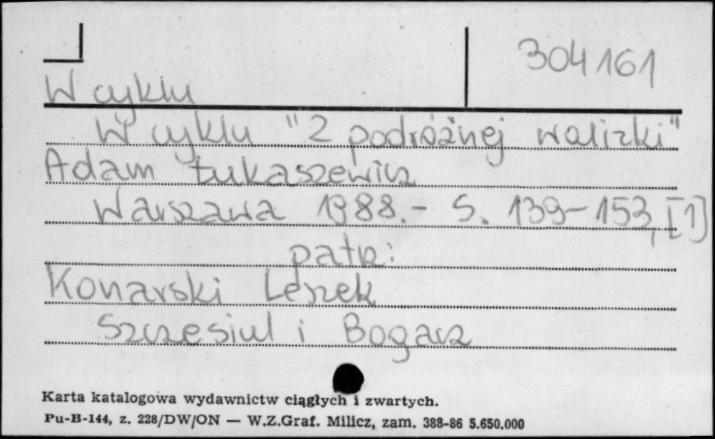 304161
W cyklu
W cyklu "Z podróżnej walizki"
Adam Łukaszewicz
Warszawa 1988.- S. 139-153, [1]
patrz:
Konarski Leszek
Szczesiul i Bogacz
Karta katalogowa wydawnictw ciągłych i zwartych.
Pu-B-144, z. 228/DW/ON — W.Z.Graf. Milicz, zam. 388-86 5.650.000